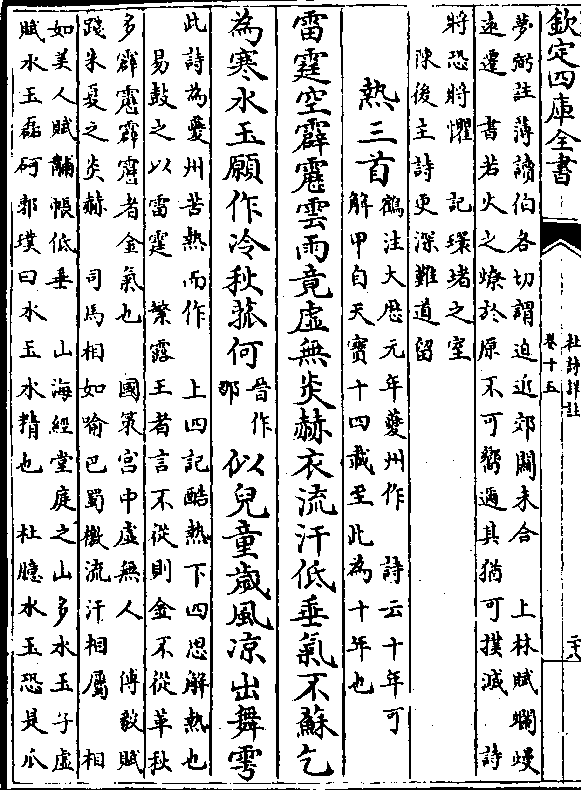 欽定四庫全書
杜詩詳註
卷十五
夢弼註薄讀伯各切謂迫近郊關未合　上林賦爛熳
遠遷　書若火之燎於原不可嚮邇其猶可撲滅　詩
將恐將懼　記環堵之室
陳後主詩更深難道留
熱三首
鶴注大厯元年夔州作　詩云十年可
解甲自天寶十四載至此為十年也
雷霆空霹靂雲雨竟虛無炎赫衣流汗低垂氣不蘇乞
為寒水玉願作冷秋菰何晉作那似兒童歲風凉出舞雩
此詩為夔州苦熱而作　上四記酷熱下四思解熱也
易鼓之以雷霆　繁露王者言不從則金不從革秋
多霹靂霹靂者金氣也　國策宫中虛無人　傅毅賦
踐朱夏之炎赫　司馬相如喻巴蜀檄流汗相屬　相
如美人賦黼帳低垂　山海經堂庭之山多水玉子虛
賦水玉磊砢郭璞曰水玉水精也　杜臆水玉恐是瓜